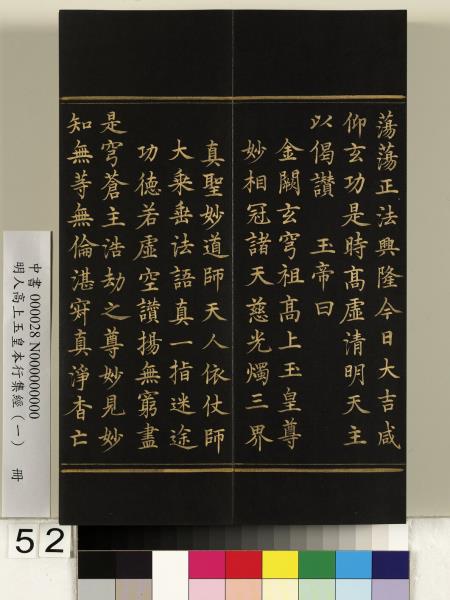 蕩蕩正法興隆今日大吉咸
仰玄功是時高虛清明天主
以偈讚　玉帝曰
金闕玄穹祖高上玉皇尊
妙相冠諸天慈光燭三界
真聖妙道師天人依仗師
大乘垂法語真一指迷途
功德若虛空讚揚無窮盡
是穹蒼主浩劫之尊妙見妙
知無等無倫湛寂真淨杳亡
中書 000028 N000000000
明人高上玉皇本行集經（一）　冊
52